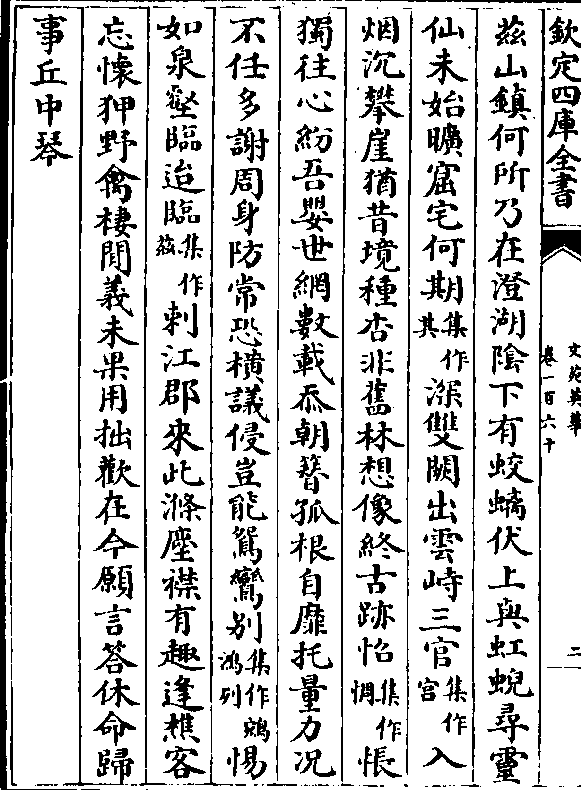 欽定四庫全書
文苑英華
卷一百六十
二
茲山鎮何所乃在澄湖陰下有蛟螭伏上與虹蜺尋靈
仙未始曠窟宅何期集作其深雙闕出雲峙三官集作宫入
烟沉攀崖猶昔境種杏非舊林想像終古跡怊集作惆悵
獨往心紛吾嬰世網數載忝朝簪孤根自靡托量力况
不任多謝周身防常恐橫議侵豈能鴛鸞别集作鵷鴻列惕
如泉壑臨迨臨集作兹刺江郡來此滌塵襟有趣逢樵客
忘懷狎野禽棲閒義未果用拙歡在今願言答休命歸
事丘中琴